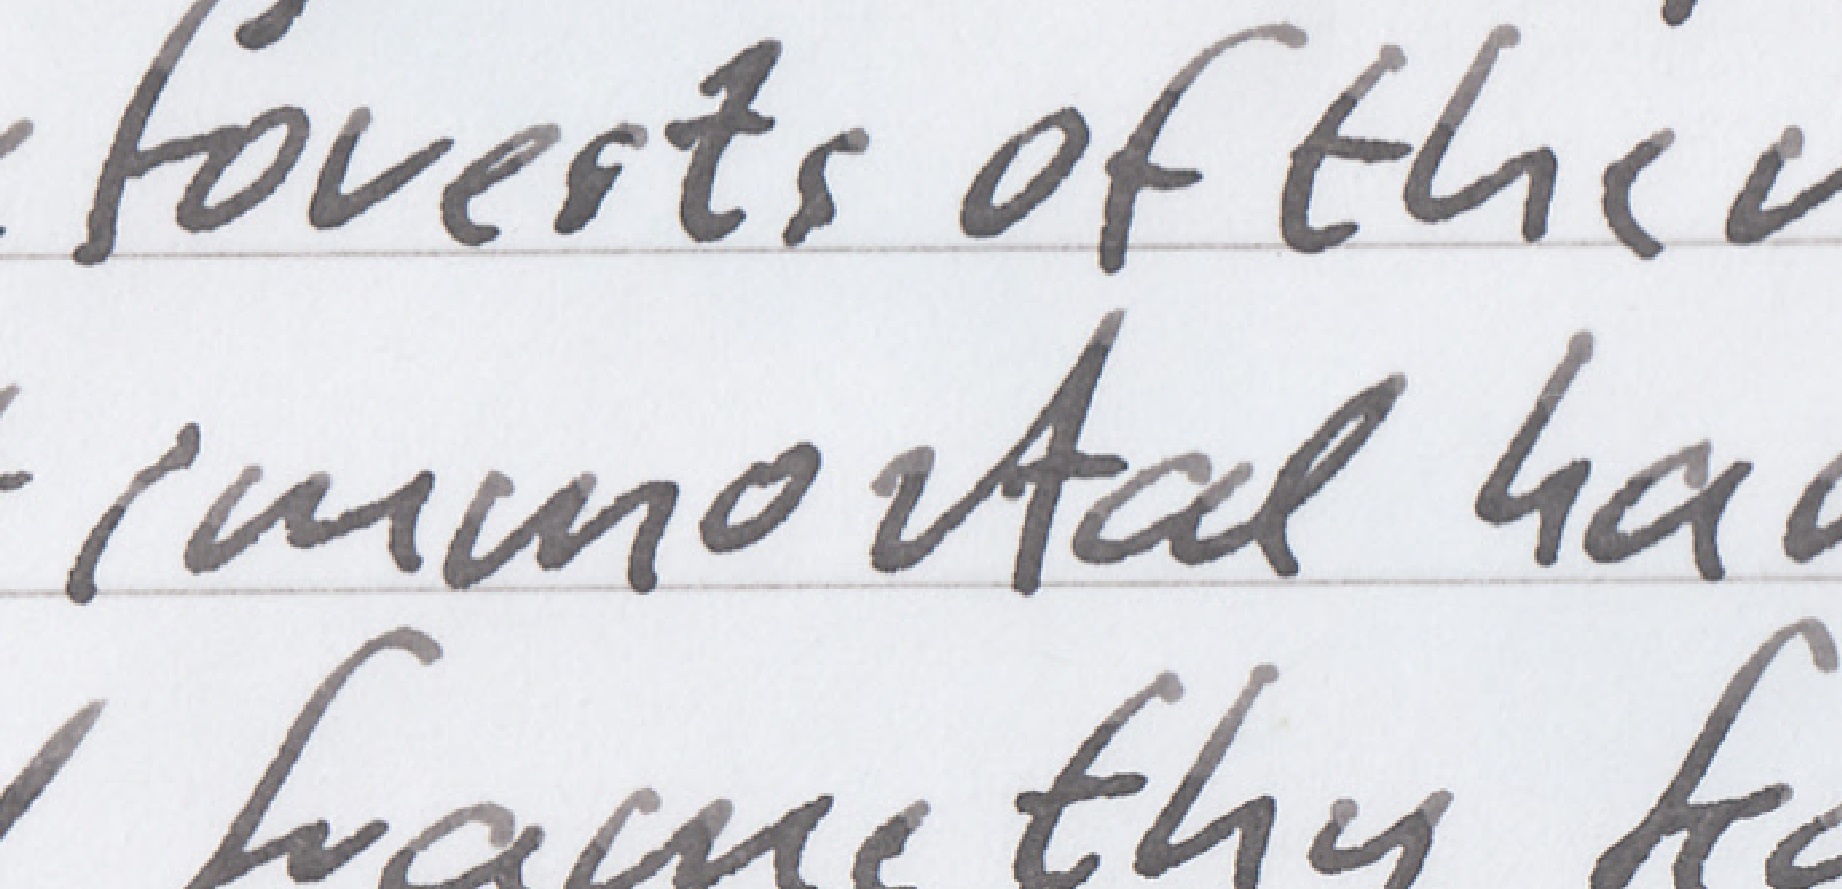 forests of the n
t immortal han
frame thy fea